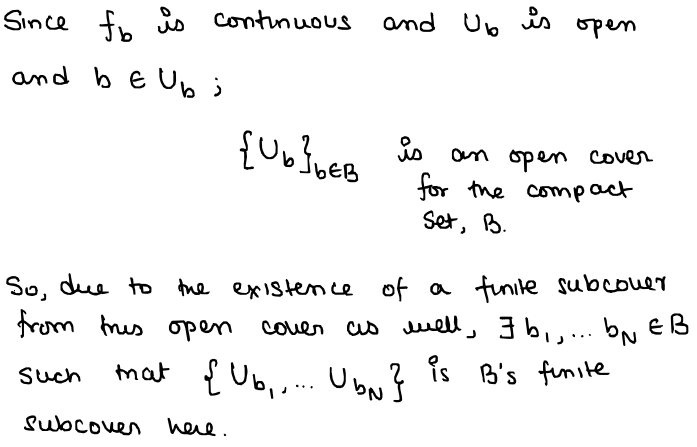 Since f_b is continuous and U_b is open
and b ∈ U_b ;
{U_b}_{b∈B} is an open cover
for the compact
set, B.
So, due to the existence of a finite subcover
from this open cover as well, ∃ b_1, ... b_N ∈ B
such that { U_{b_1}, ... U_{b_N} } is B's finite
subcover here.